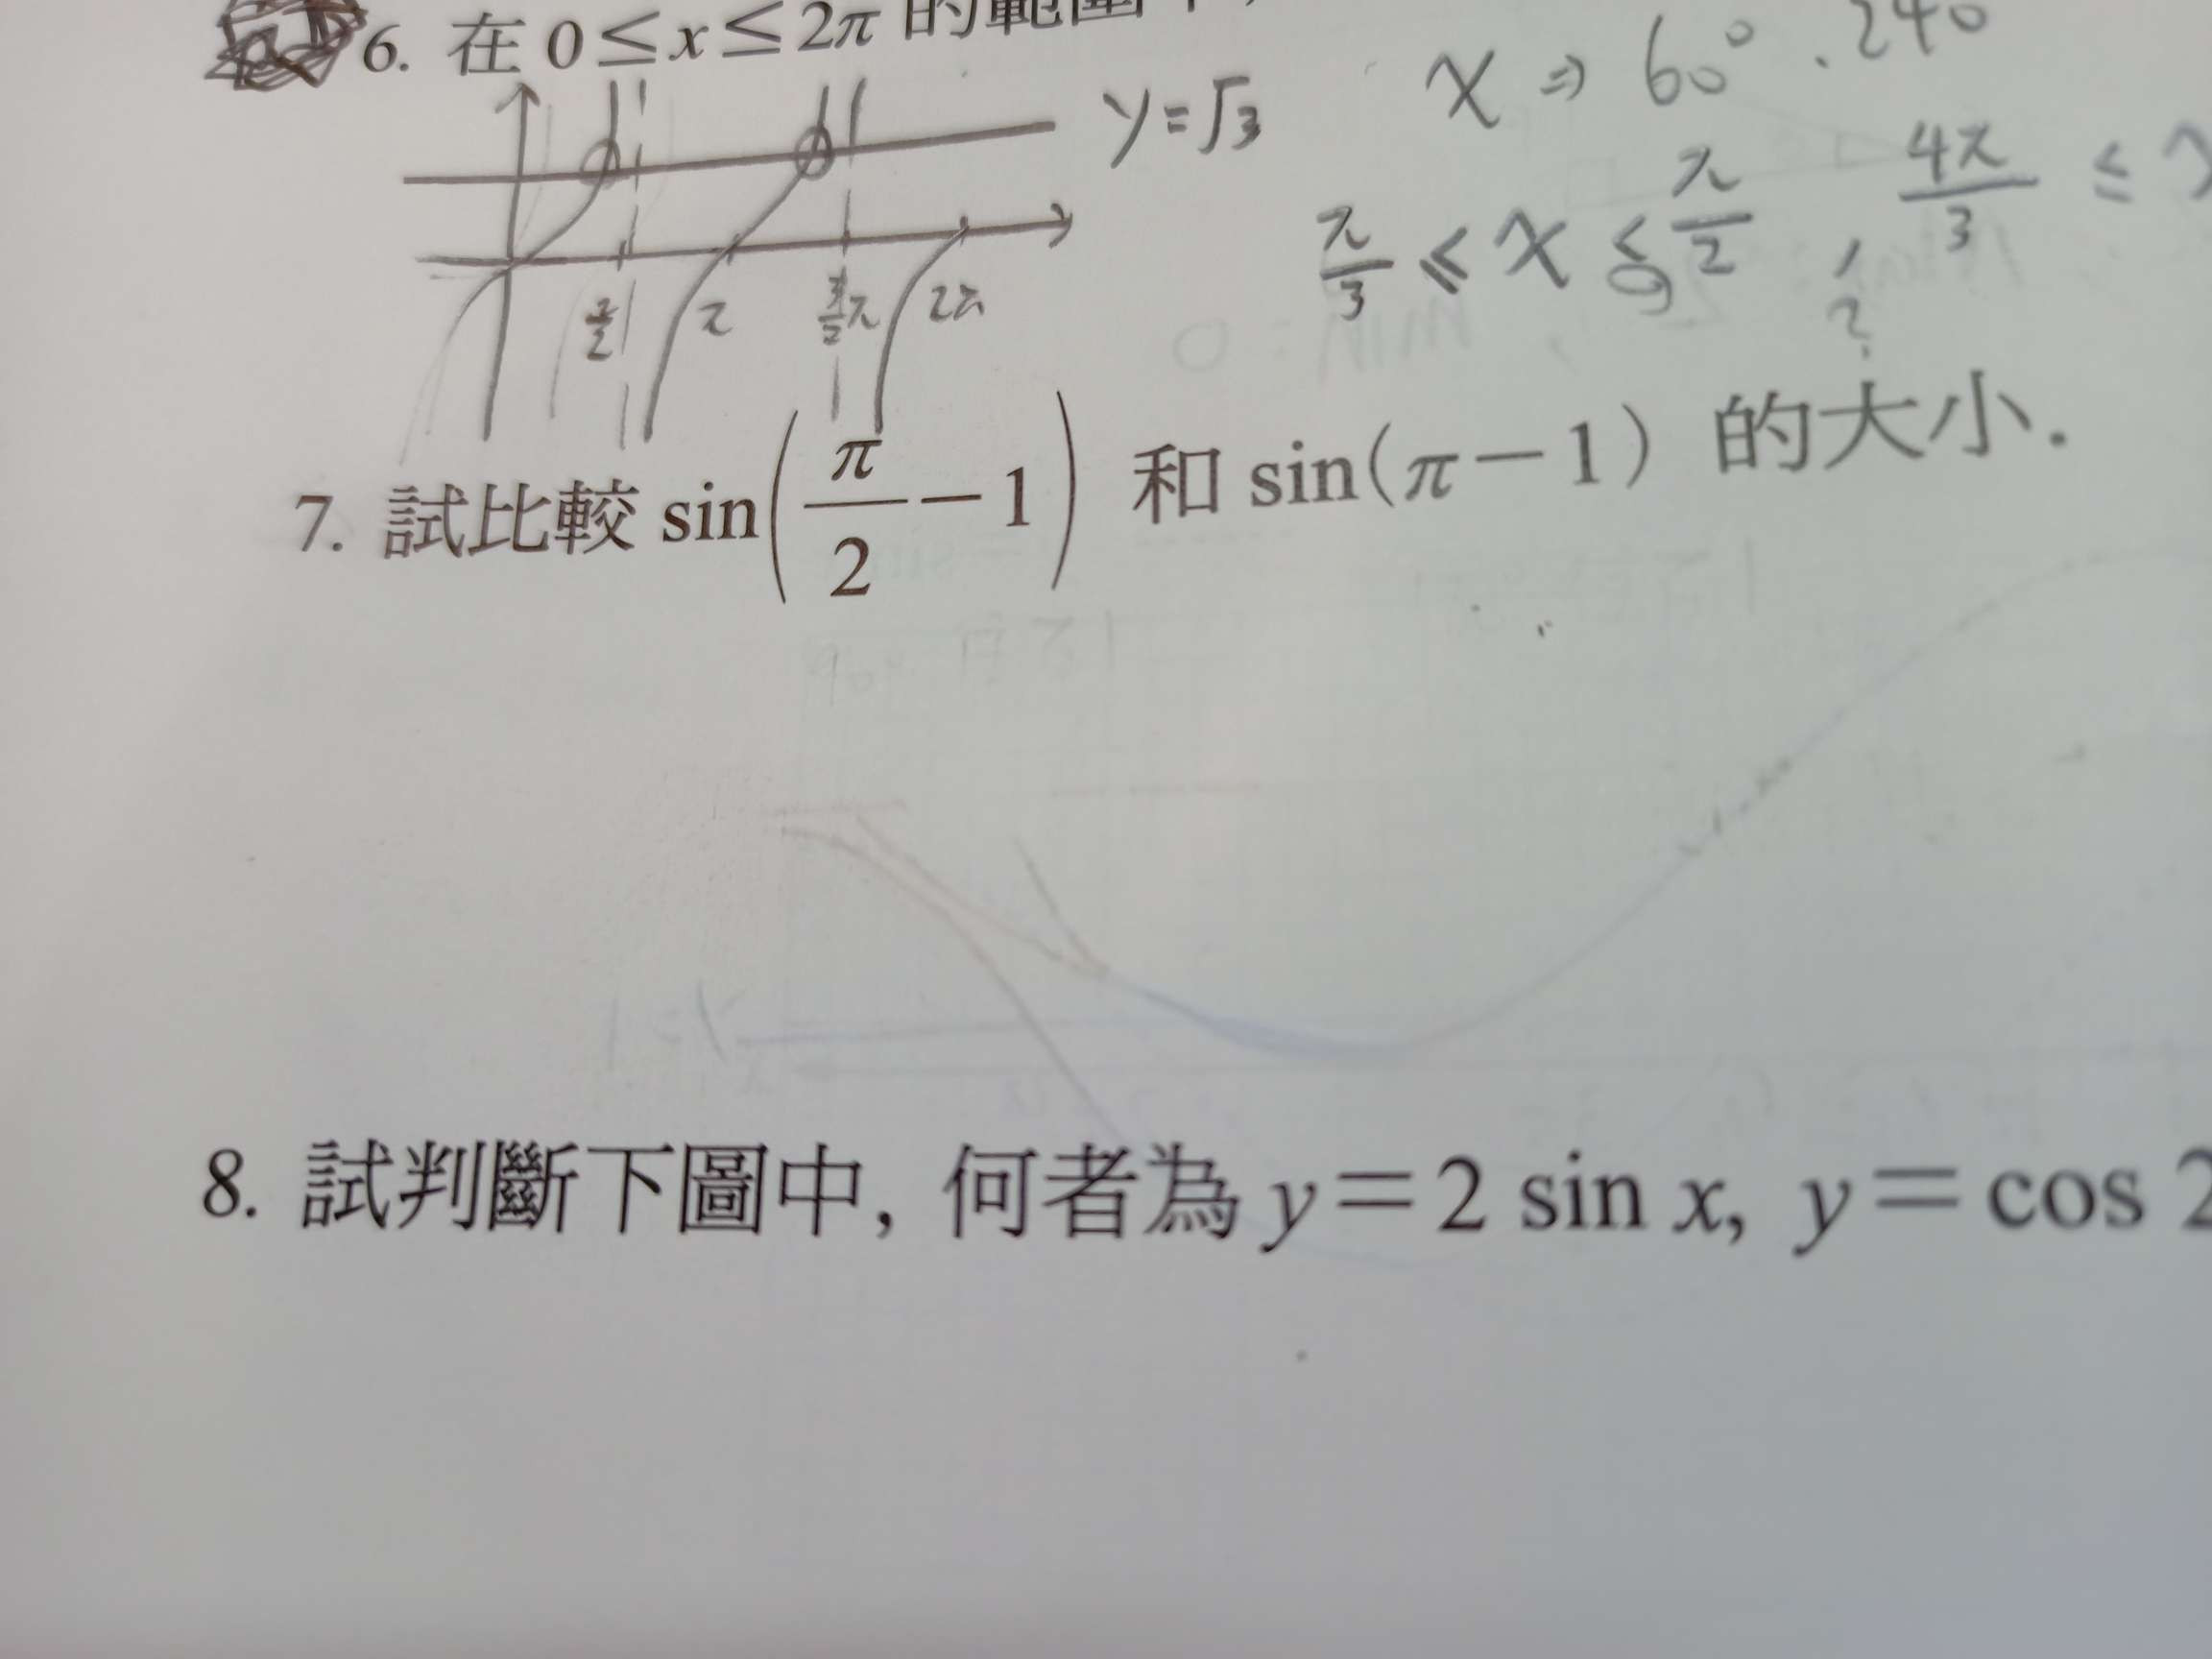 6. 在 0≤x≤2π 的範圍
x ⇒ 60° . 240
y=√3
π/3 ≤ x ≤ π/2 , 4π/3 ≤
?
π/2 π 3/2π 2π
7. 試比較 sin(π/2−1) 和 sin(π−1) 的大小.
8. 試判斷下圖中, 何者為 y=2 sin x, y=cos 2